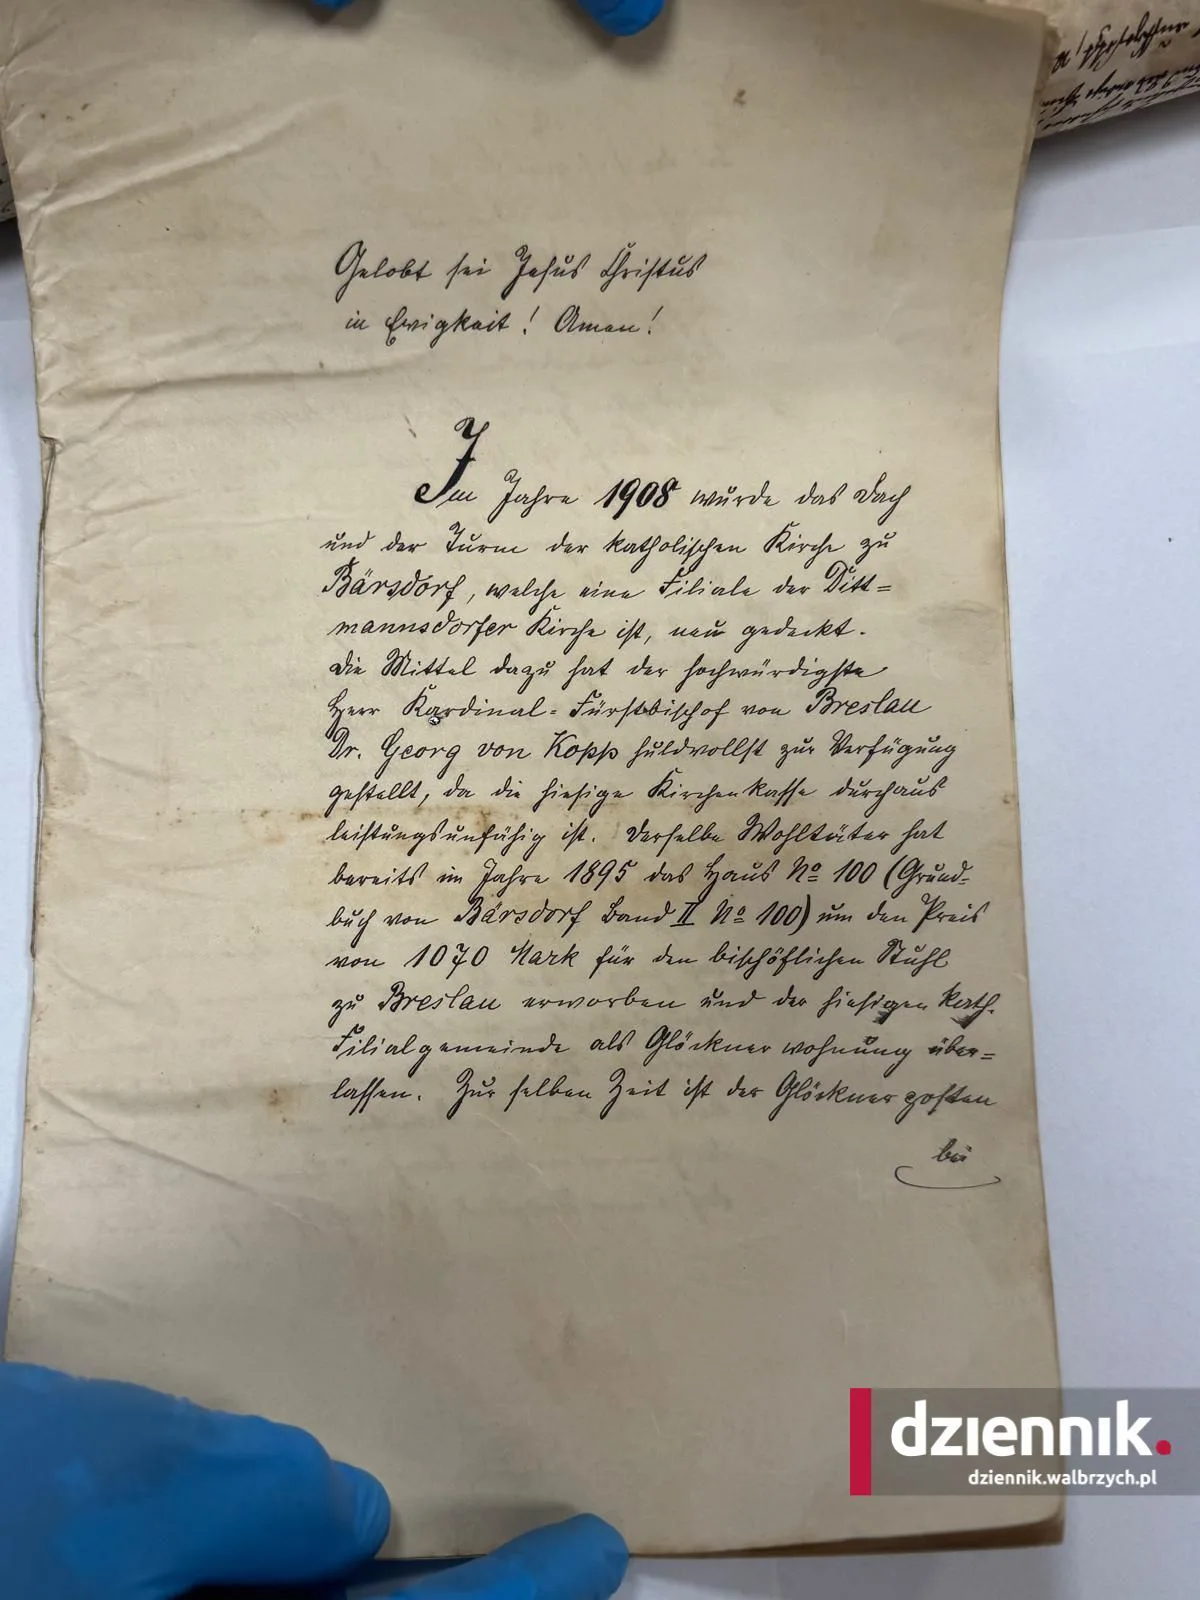 Gelobt sei Jesus Christus
in Ewigkeit! Amen!
Im Jahre 1908 wurde das Dach
und der Turm der katholischen Kirche zu
Bärsdorf, welche eine Filiale der Ditt=
mannsdorfer Kirche ist, neu gedeckt.
Die Mittel dazu hat der hochwürdigste
Herr Kardinal=Fürstbischof von Breslau
Dr. Georg von Kopp huldvollst zur Verfügung
gestellt, da die hiesige Kirchenkasse durchaus
leistungsunfähig ist. Derselbe Wohltäter hat
bereits im Jahre 1895 das Haus No 100 (Grund=
buch von Bärsdorf Band II No 100) um den Preis
von 1070 Mark für den bischöflichen Stuhl
zu Breslau erworben und der hiesigen kath.
Filialgemeinde als Glöcknerwohnung über=
lassen. Zur selben Zeit ist der Glöcknerposten
bei
dziennik.
dziennik.walbrzych.pl